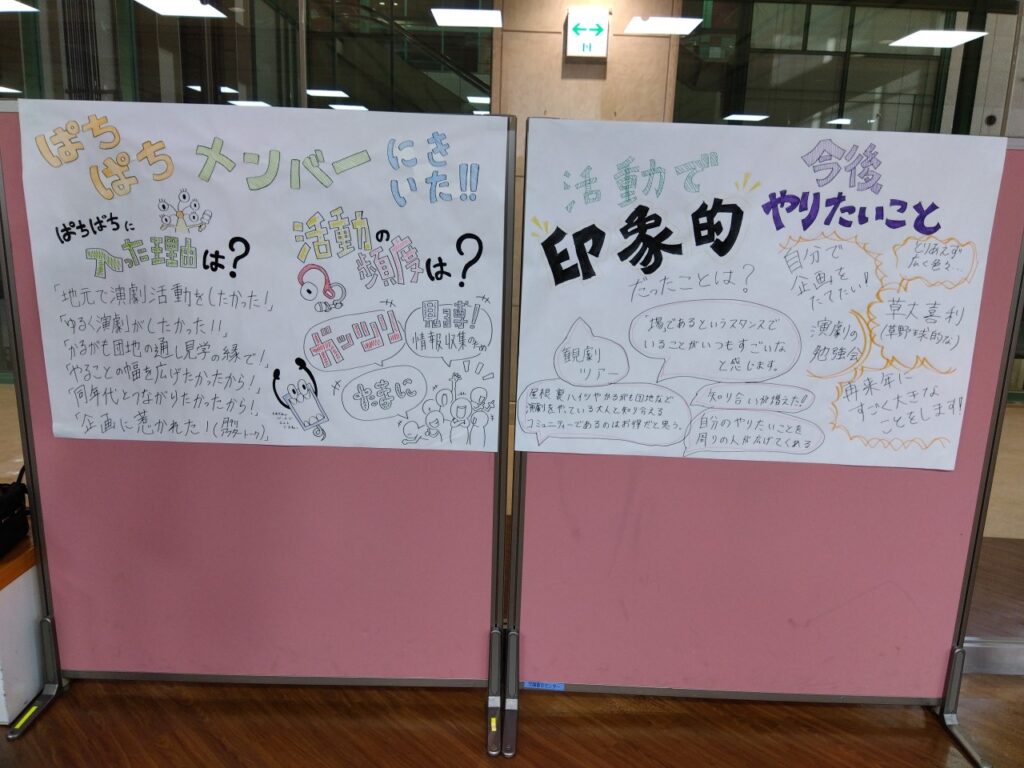 ぱち
ぱち
メンバー
にき
いた!!
ぱちぱちに
入った理由は?
「地元で演劇活動をしたかった!」
「ゆるく演劇がしたかった!!」
「かるがも団地の通し見学の縁で!」
「やることの幅を広げたかったから!」
「同年代とつながりたかったから!」
「企画に惹かれた!
活動の
頻度は?
ガッツリ
情報収集のため
たまに
活動で
印象的
だったことは?
観劇
ツアー
"場"であるというスタンスで
いることがいつもすごいな
と感じます。
屋根裏ハイツやかるがも団地など
演劇をやっている大人と知り合える
コミュニティーであるのはお得だと思う。
知り合いが増えた!
自分のやりたいことを
周りの人が広げてくれる
今後
やりたいこと
自分で
企画を
たてたい!
とりあえず
なく色々…
演劇の
勉強会
草大喜利
(草野球的な)
再来年に
すごく大きな
ことをします!